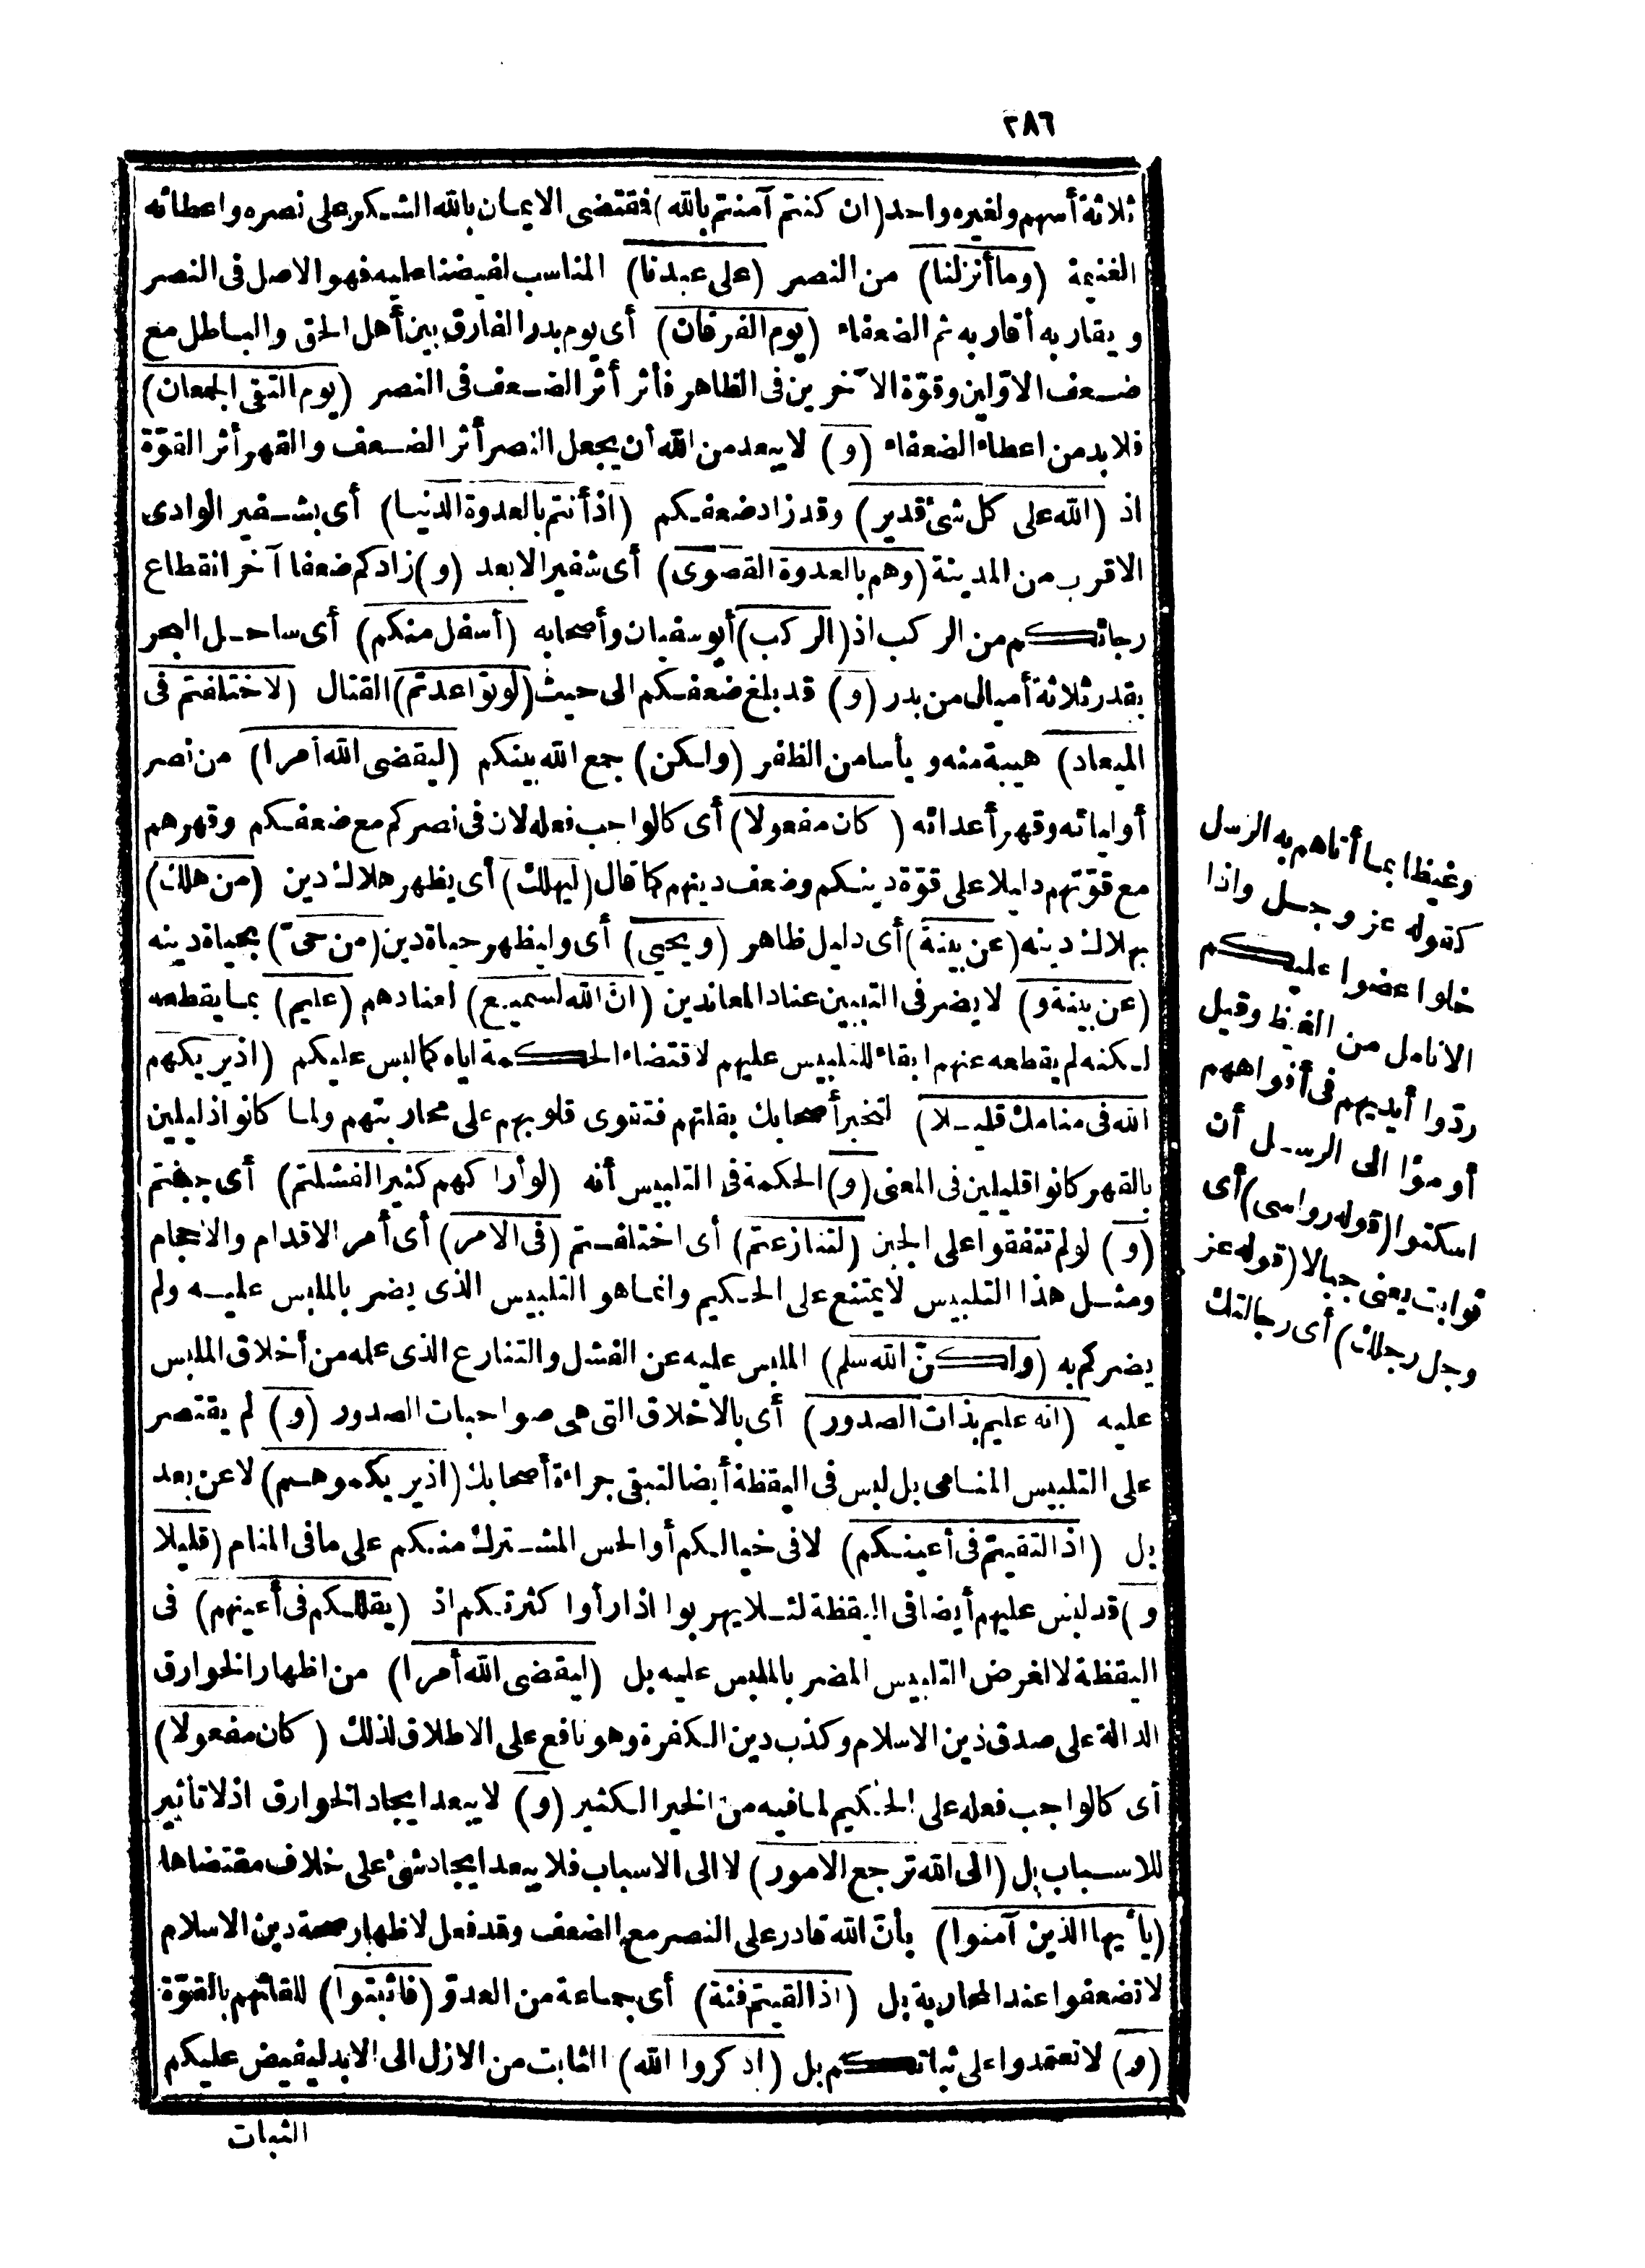 ٢٨٦
ثلاثة أسهم ولغيره واحد (ان كنتم آمنتم بالله) فقتضى الايمان بالله الشكر على نصره واعطائه
الغنيمة (وما أنزلنا) من النصر (على عبدنا) المناسب لفيضنا عليه فهو الاصل فى النصر
ويقاربه أقاربه ثم الضعفاء (يوم الفرقان) أى يوم بدر الفارق بين أهل الحق والباطل مع
ضعف الاوّلين وقوّة الآخرين فى الظاهر فأثر أثر الضعف فى النصر (يوم التقى الجمعان)
فلا بد من اعطاء الضعفاء (و) لا يبعد من الله أن يجعل النصر أثر الضعف والقهر أثر القوّة
اذ (الله على كل شئ قدير) وقد زاد ضعفكم (اذ أنتم بالعدوة الدنيا) أى بشفير الوادى
الاقرب من المدينة (وهم بالعدوة القصوى) أى شفير الابعد (و) زادكم ضعفا آخر انقطاع
رجائكم من الركب اذ (الركب) أبو سفيان وأصحابه (أسفل منكم) أى ساحل البحر
بقدر ثلاثة أميال من بدر (و) قد بلغ ضعفكم الى حيث (لو تواعدتم) القتال (لاختلفتم فى
الميعاد) هيبة منه ويأسا من الظفر (ولكن) جمع الله بينكم (ليقضى الله أمرا) من نصر
أوليائه وقهر أعدائه (كان مفعولا) أى كالواجب فعله لان فى نصركم مع ضعفكم وقهرهم
مع قوّتهم دليلا على قوّة دينكم وضعف دينهم كما قال (ليهلك) أى يظهر هلاك دين (من هلك)
بهلاك دينه (عن بينة) أى دليل ظاهر (ويحيى) أى وليظهر حياة دين (من حىّ) بحياة دينه
(عن بينة و) لا يضر فى التبيين عناد المعاندين (ان الله لسميع) لعنادهم (عليم) بما يقطعه
لكنه لم يقطعه عنهم ابقاء للتلبيس عليهم لاقتضاء الحكمة اياه كما لبس عليكم (اذ يريكهم
الله فى منامك قليلا) لتخبر أصحابك بقلتهم فتتقوى قلوبهم على محاربتهم ولما كانوا ذليلين
بالقهر كانوا قليلين فى المعنى (و) الحكمة فى التلبيس أنه (لو أراكهم كثيرا لفشلتم) أى جبنتم
(و) لو لم تتفقوا على الجبن (لتنازعتم) أى اختلفتم (فى الامر) أى أمر الاقدام والاحجام
ومثل هذا التلبيس لا يمتنع على الحكيم وانما هو التلبيس الذى يضر بالملبس عليه ولم
يضركم به (ولكنّ الله سلم) الملبس عليه عن الفشل والتنازع الذى علمه من أخلاق الملبس
عليه (انه عليم بذات الصدور) أى بالاخلاق التى هى صواحبات الصدور (و) لم يقتصر
على التلبيس المنامى بل لبس فى اليقظة أيضا لتبقى جراءة أصحابك (اذ يريكموهم) لا عن بعد
بل (اذ التقيتم فى أعينكم) لا فى خيالكم أو الحس المشترك منكم على ما فى المنام (قليلا
و) قد لبس عليهم أيضا فى اليقظة لئلا يهربوا اذا رأوا كثرتكم اذ (يقللكم فى أعينهم) فى
اليقظة لا لغرض التلبيس المضر بالملبس عليه بل (ليقضى الله أمرا) من اظهار الخوارق
الدالة على صدق دين الاسلام وكذب دين الكفرة وهو نافع على الاطلاق لذلك (كان مفعولا)
أى كالواجب فعله على الحكيم لما فيه من الخير الكثير (و) لا يبعد ايجاد الخوارق اذ لا تأثير
للاسباب بل (الى الله ترجع الامور) لا الى الاسباب فلا يبعد ايجاد شئ على خلاف مقتضاها
(يا أيها الذين آمنوا) بأنّ الله قادر على النصر مع الضعف وقد فعل لاظهار صحة دين الاسلام
لا تضعفوا عند المحاربة بل (اذا لقيتم فئة) أى جماعة من العدوّ (فاثبتوا) للقائهم بالقوّة
(و) لا تعتمدوا على ثباتكم بل (اذكروا الله) الثابت من الازل الى الابد ليفيض عليكم
الثبات
وغيظا بما أتاهم به الرسل
كقوله عز وجل واذا
خلوا عضوا عليكم
الانامل من الغيظ وقيل
ردّوا أيديهم فى أفواههم
أومؤا الى الرسل أن
اسكتوا (قوله رواسى) أى
ثوابت يعنى جبالا (قوله عز
وجل رجلك) أى رجالتك